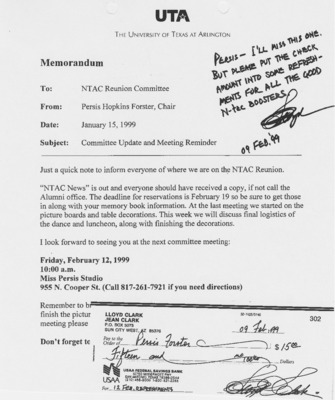 UTA
THE UNIVERSITY OF TEXAS AT ARLINGTON
PERSIS - I'LL MISS THIS ONE.
BUT PLEASE PUT THE CHECK
AMOUNT INTO SOME REFRESH-
MENTS FOR ALL THE GOOD
N-TAC BOOSTERS.
09 FEB. '99
Memorandum
To: NTAC Reunion Committee
From: Persis Hopkins Forster, Chair
Date: January 15, 1999
Subject: Committee Update and Meeting Reminder
Just a quick note to inform everyone of where we are on the NTAC Reunion.
"NTAC News" is out and everyone should have received a copy, if not call the
Alumni office. The deadline for reservations is February 19 so be sure to get those
in along with your memory book information. At the last meeting we started on the
picture boards and table decorations. This week we will discuss final logistics of
the dance and luncheon, along with finishing the decorations.
I look forward to seeing you at the next committee meeting:
Friday, February 12, 1999
10:00 a.m.
Miss Persis Studio
955 N. Cooper St. (Call 817-261-7921 if you need directions)
Remember to br
finish the pictur
meeting please
Don't forget to
LLOYD CLARK
JEAN CLARK
P.O. BOX
SUN CITY WEST, AZ
302
09 Feb. '99
Pay to the
Order of Persis Forster $15.00
Fifteen and Dollars
USAA
USAA FEDERAL SAVINGS BANK
For 12 FEB. REFRESHMENTS
Lloyd Clark